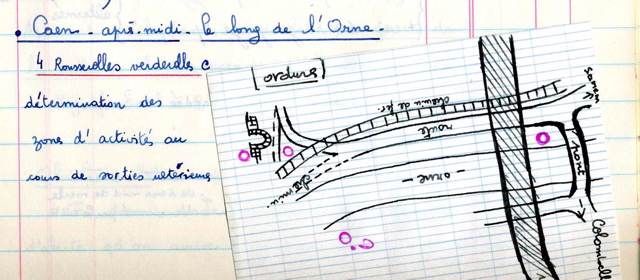 . Caen - après-midi - le long de l'Orne -
4 Rousserolles verderolles c
détermination des
zones d'activités au
cours de sorties ultérieures
chemin de fer
route
chemin
- orne -
pont
Colombelles